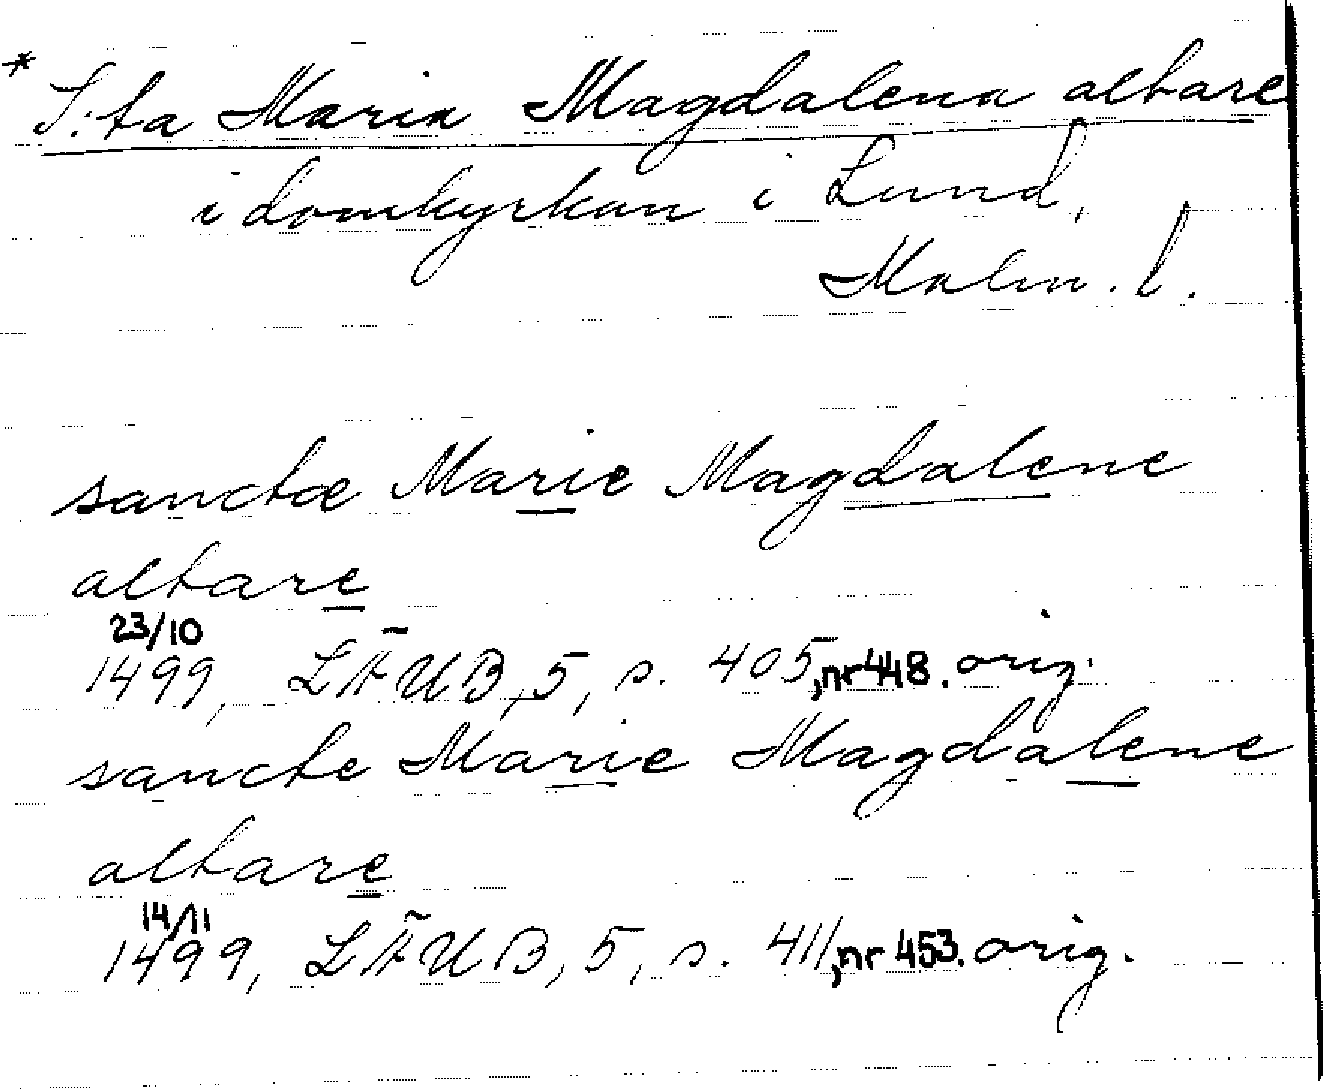 * S:ta Maria Magdalena altare
i domkyrkan i Lund,
Malm. l.
sanctæ Marie Magdalene
altare
23/10
1499, LÄUB, 5, s. 405, nr 448. orig.
sancte Marie Magdalene
altare
14/11
1499, LÄUB, 5, s. 411, nr 453. orig.